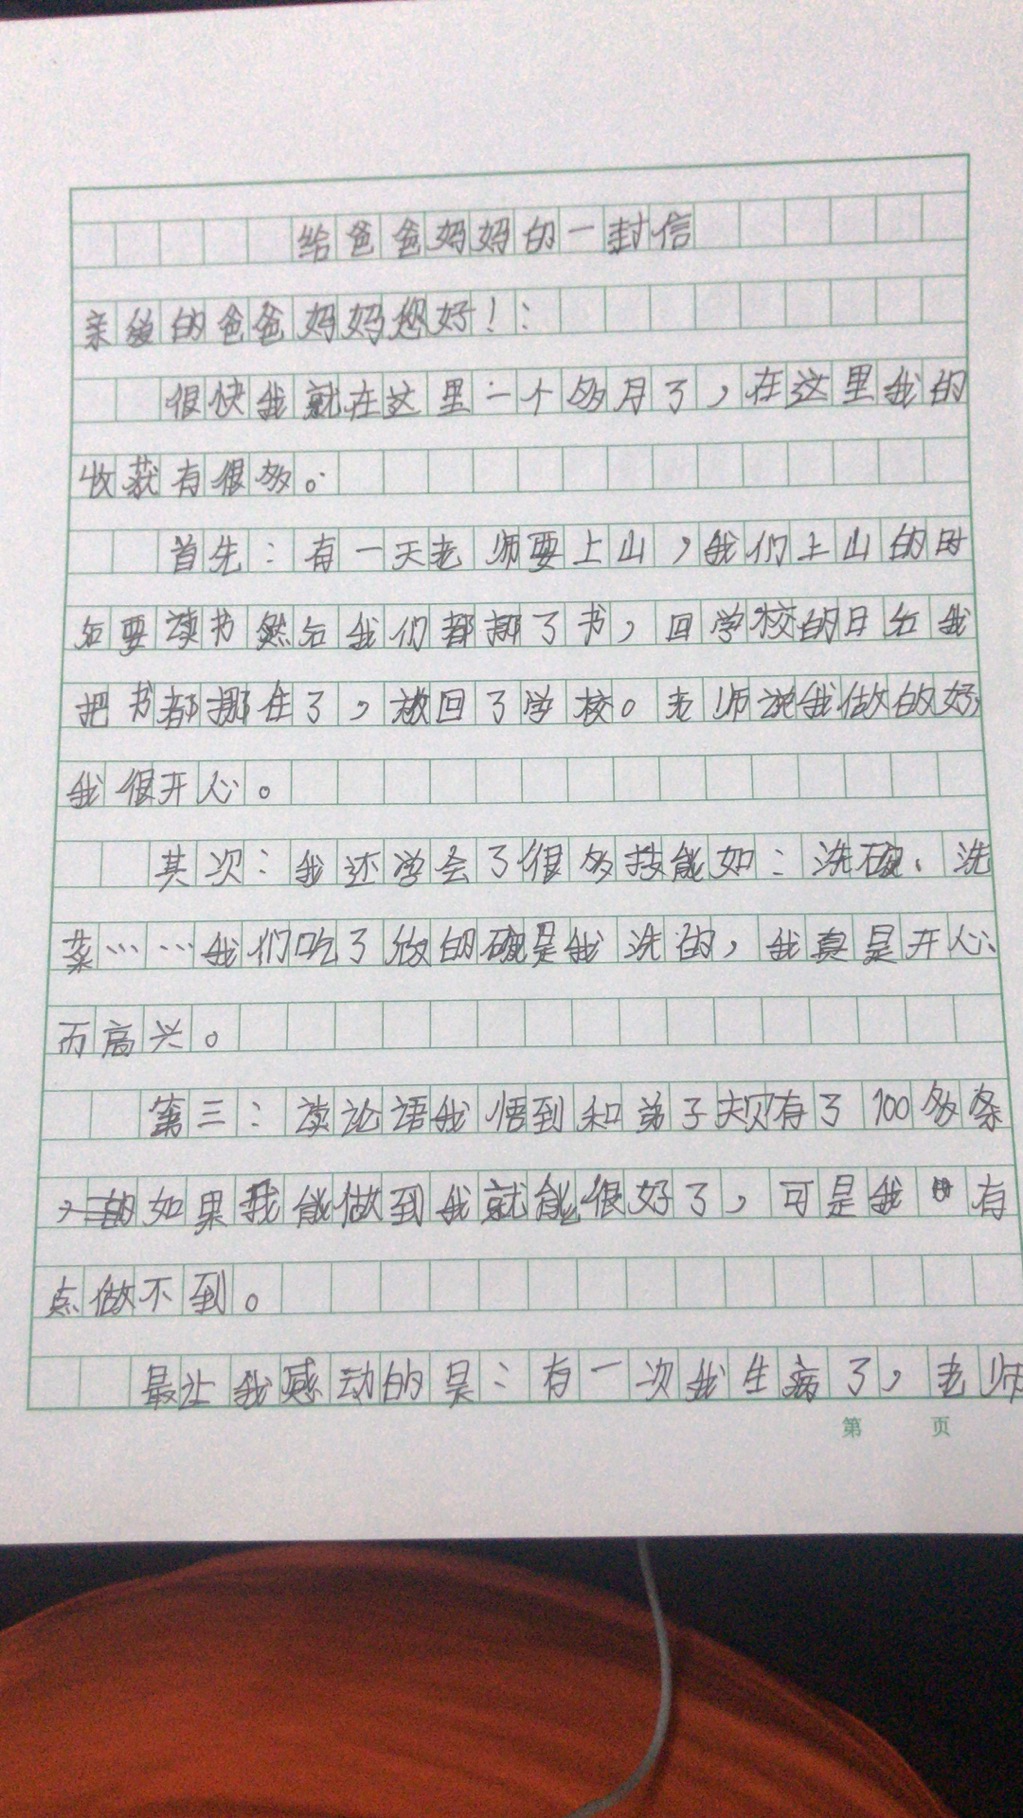 给爸爸妈妈的一封信
亲爱的爸爸妈妈您好！：
很快我就在这里一个多月了，在这里我的
收获有很多。
首先：有一天老师要上山，我们上山的时
后要读书然后我们都挪了书，回学校的日后我
把书都挪住了，放回了学校。老师说我做的好，
我很开心。
其次：我还学会了很多技能如：洗碗、洗
菜……我们吃了饭的碗是我洗的，我真是开心
而高兴。
第三：读论语我悟到和弟子规有了100多条
，如果我能做到我就能很好了，可是我有
点做不到。
最让我感动的是：有一次我生病了，老师
第 页